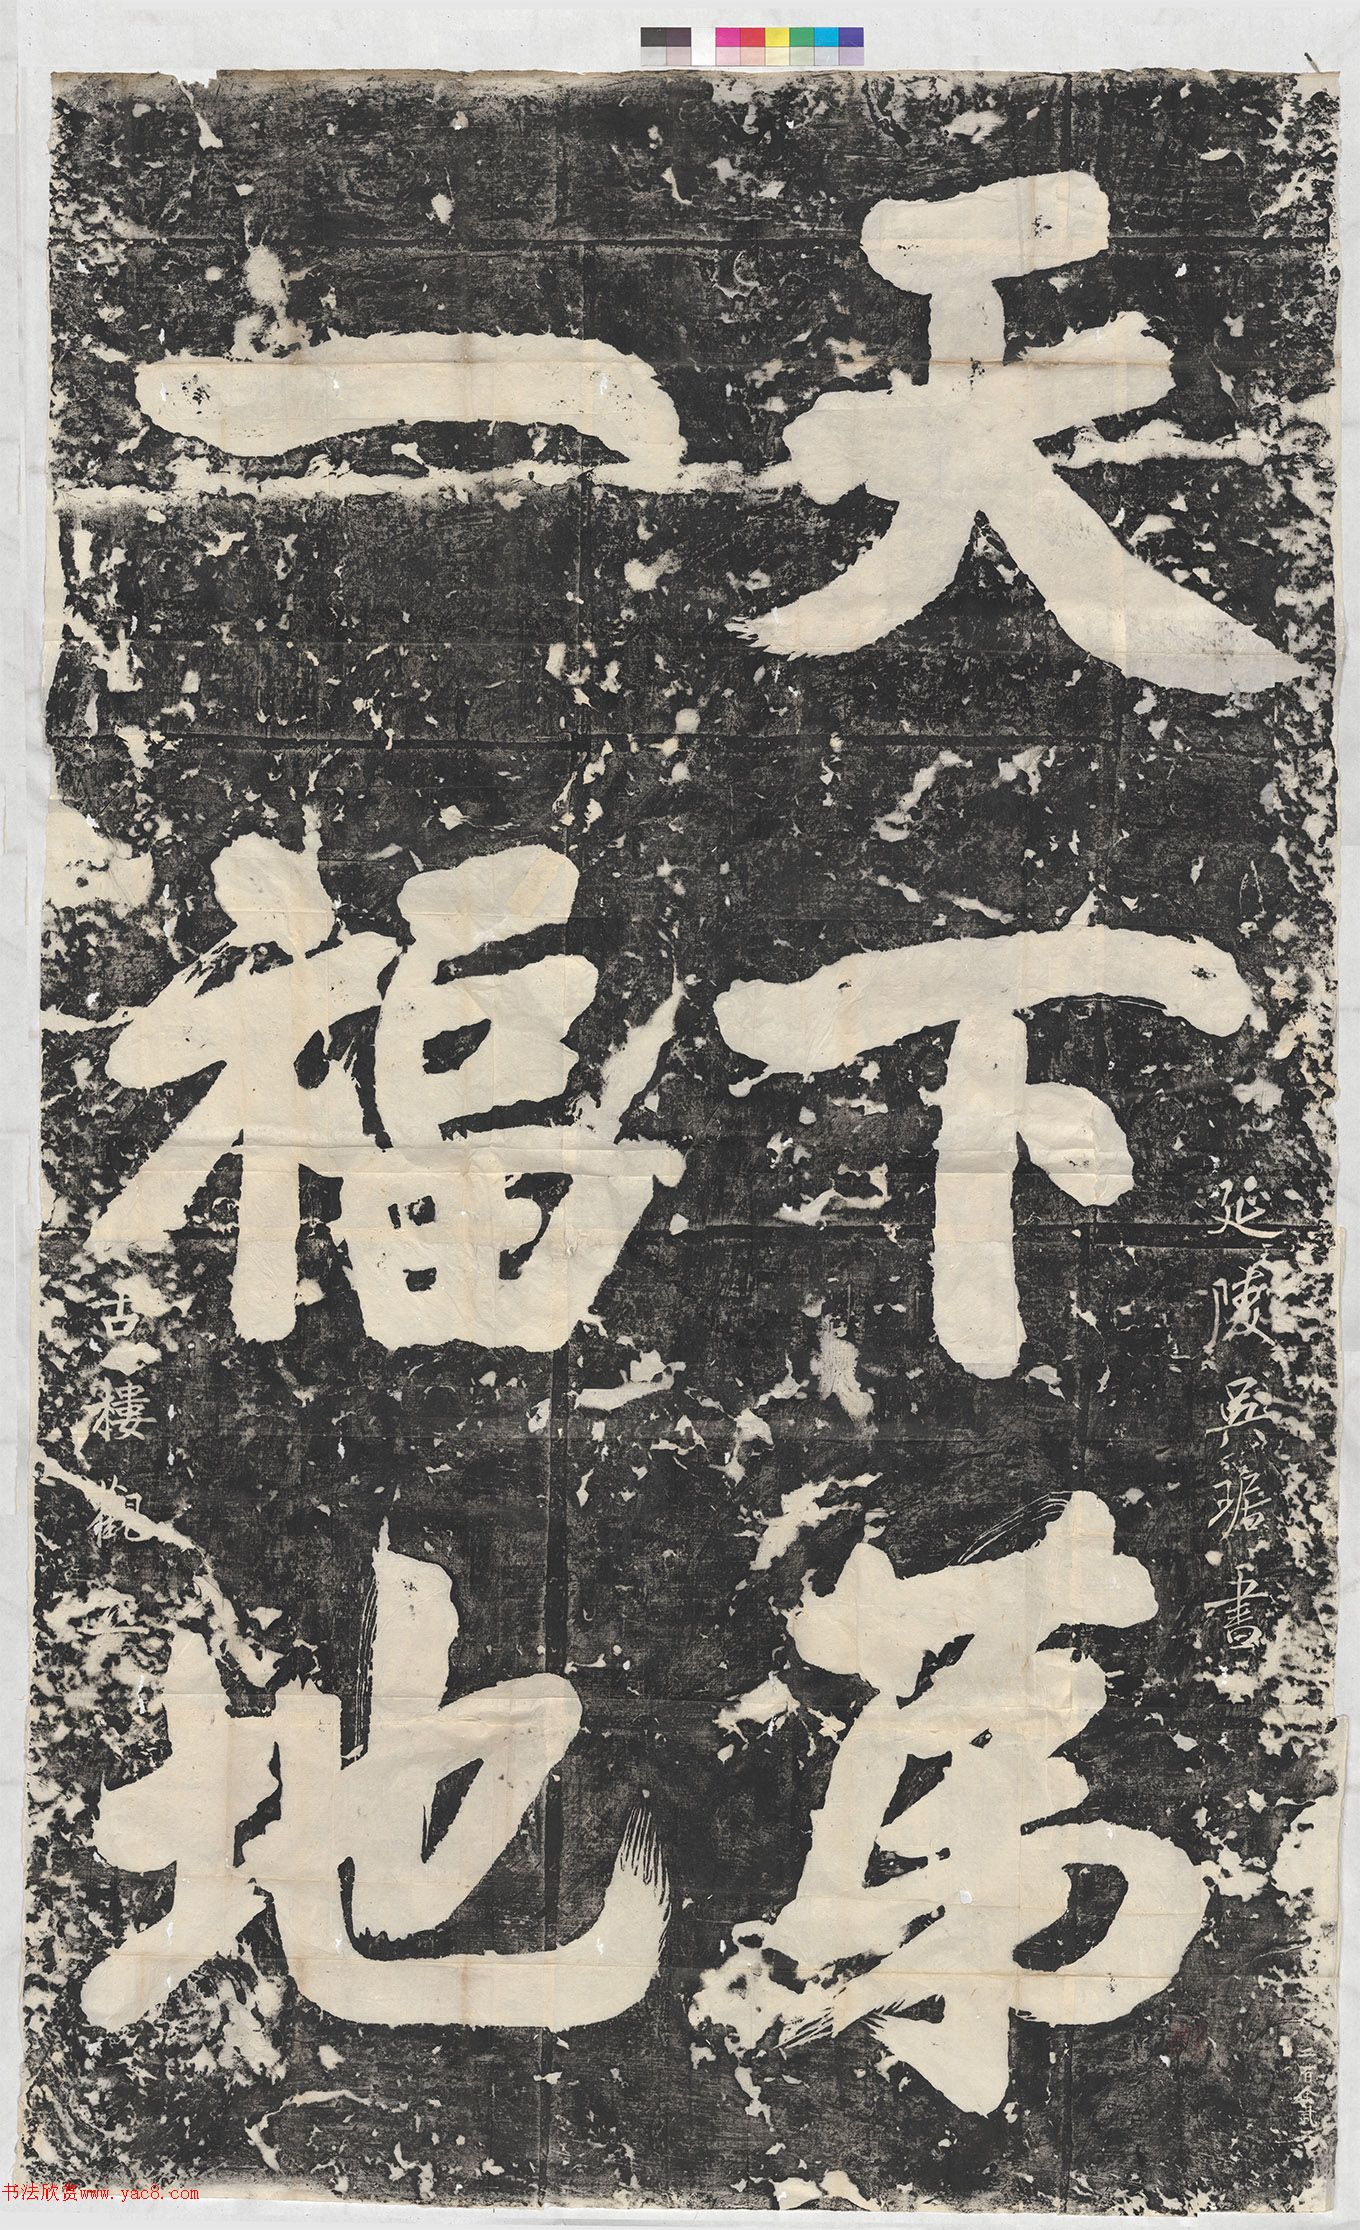 延陵吳琚書
天下第
一福地
古樓觀
书法欣赏www.yac8.com